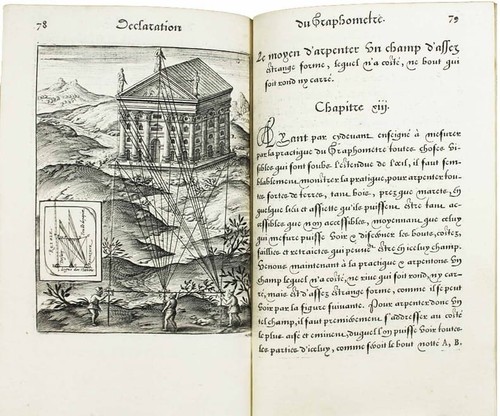 78 Declaration
du Graphometre. 79
Le moyen d'arpenter vn champ d'assez
estrange forme, lequel n'a costé, ne bout qui
soit rond ny carré.
Chapitre xiii.
Ayant par cydeuant enseigné a mesurer
par la practique du Graphometre toutes choses vi-
sibles qui sont soubs l'estendue de l'oeil, il faut sem-
blablement monstrer la pratique, pour arpenter tou-
tes sortes de terres, tant bois, prez que marets, en
quelque lieu et assiette qu'ils puissent estre tant ac-
cessibles que non accessibles, moyennant que celuy
qui mesure puisse voir et discerner les bouts, costez,
saillies et retraictes qui peuuent estre en iceluy champ.
Venons maintenant à la practique et arpentons vn
champ lequel n'a costé, ne riue qui soit rond, ny car-
ré, mais est d'assez estrange forme, comme il se peut
voir par la figure suiuante. Pour arpenter donc vn
tel champ, il faut premierement s'addresser au costé
le plus aisé et eminent, duquel l'on puisse voir toutes
les parties d'iceluy, comme seroit le bout notté A, B.